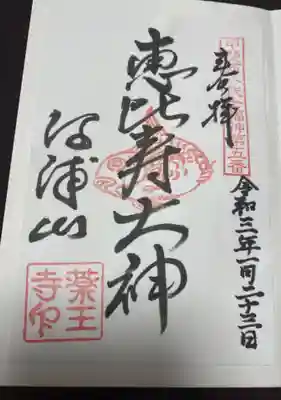 奉拝
福神第五番
令和三年一月二十三日
恵比寿大神
浦山
薬王
寺印